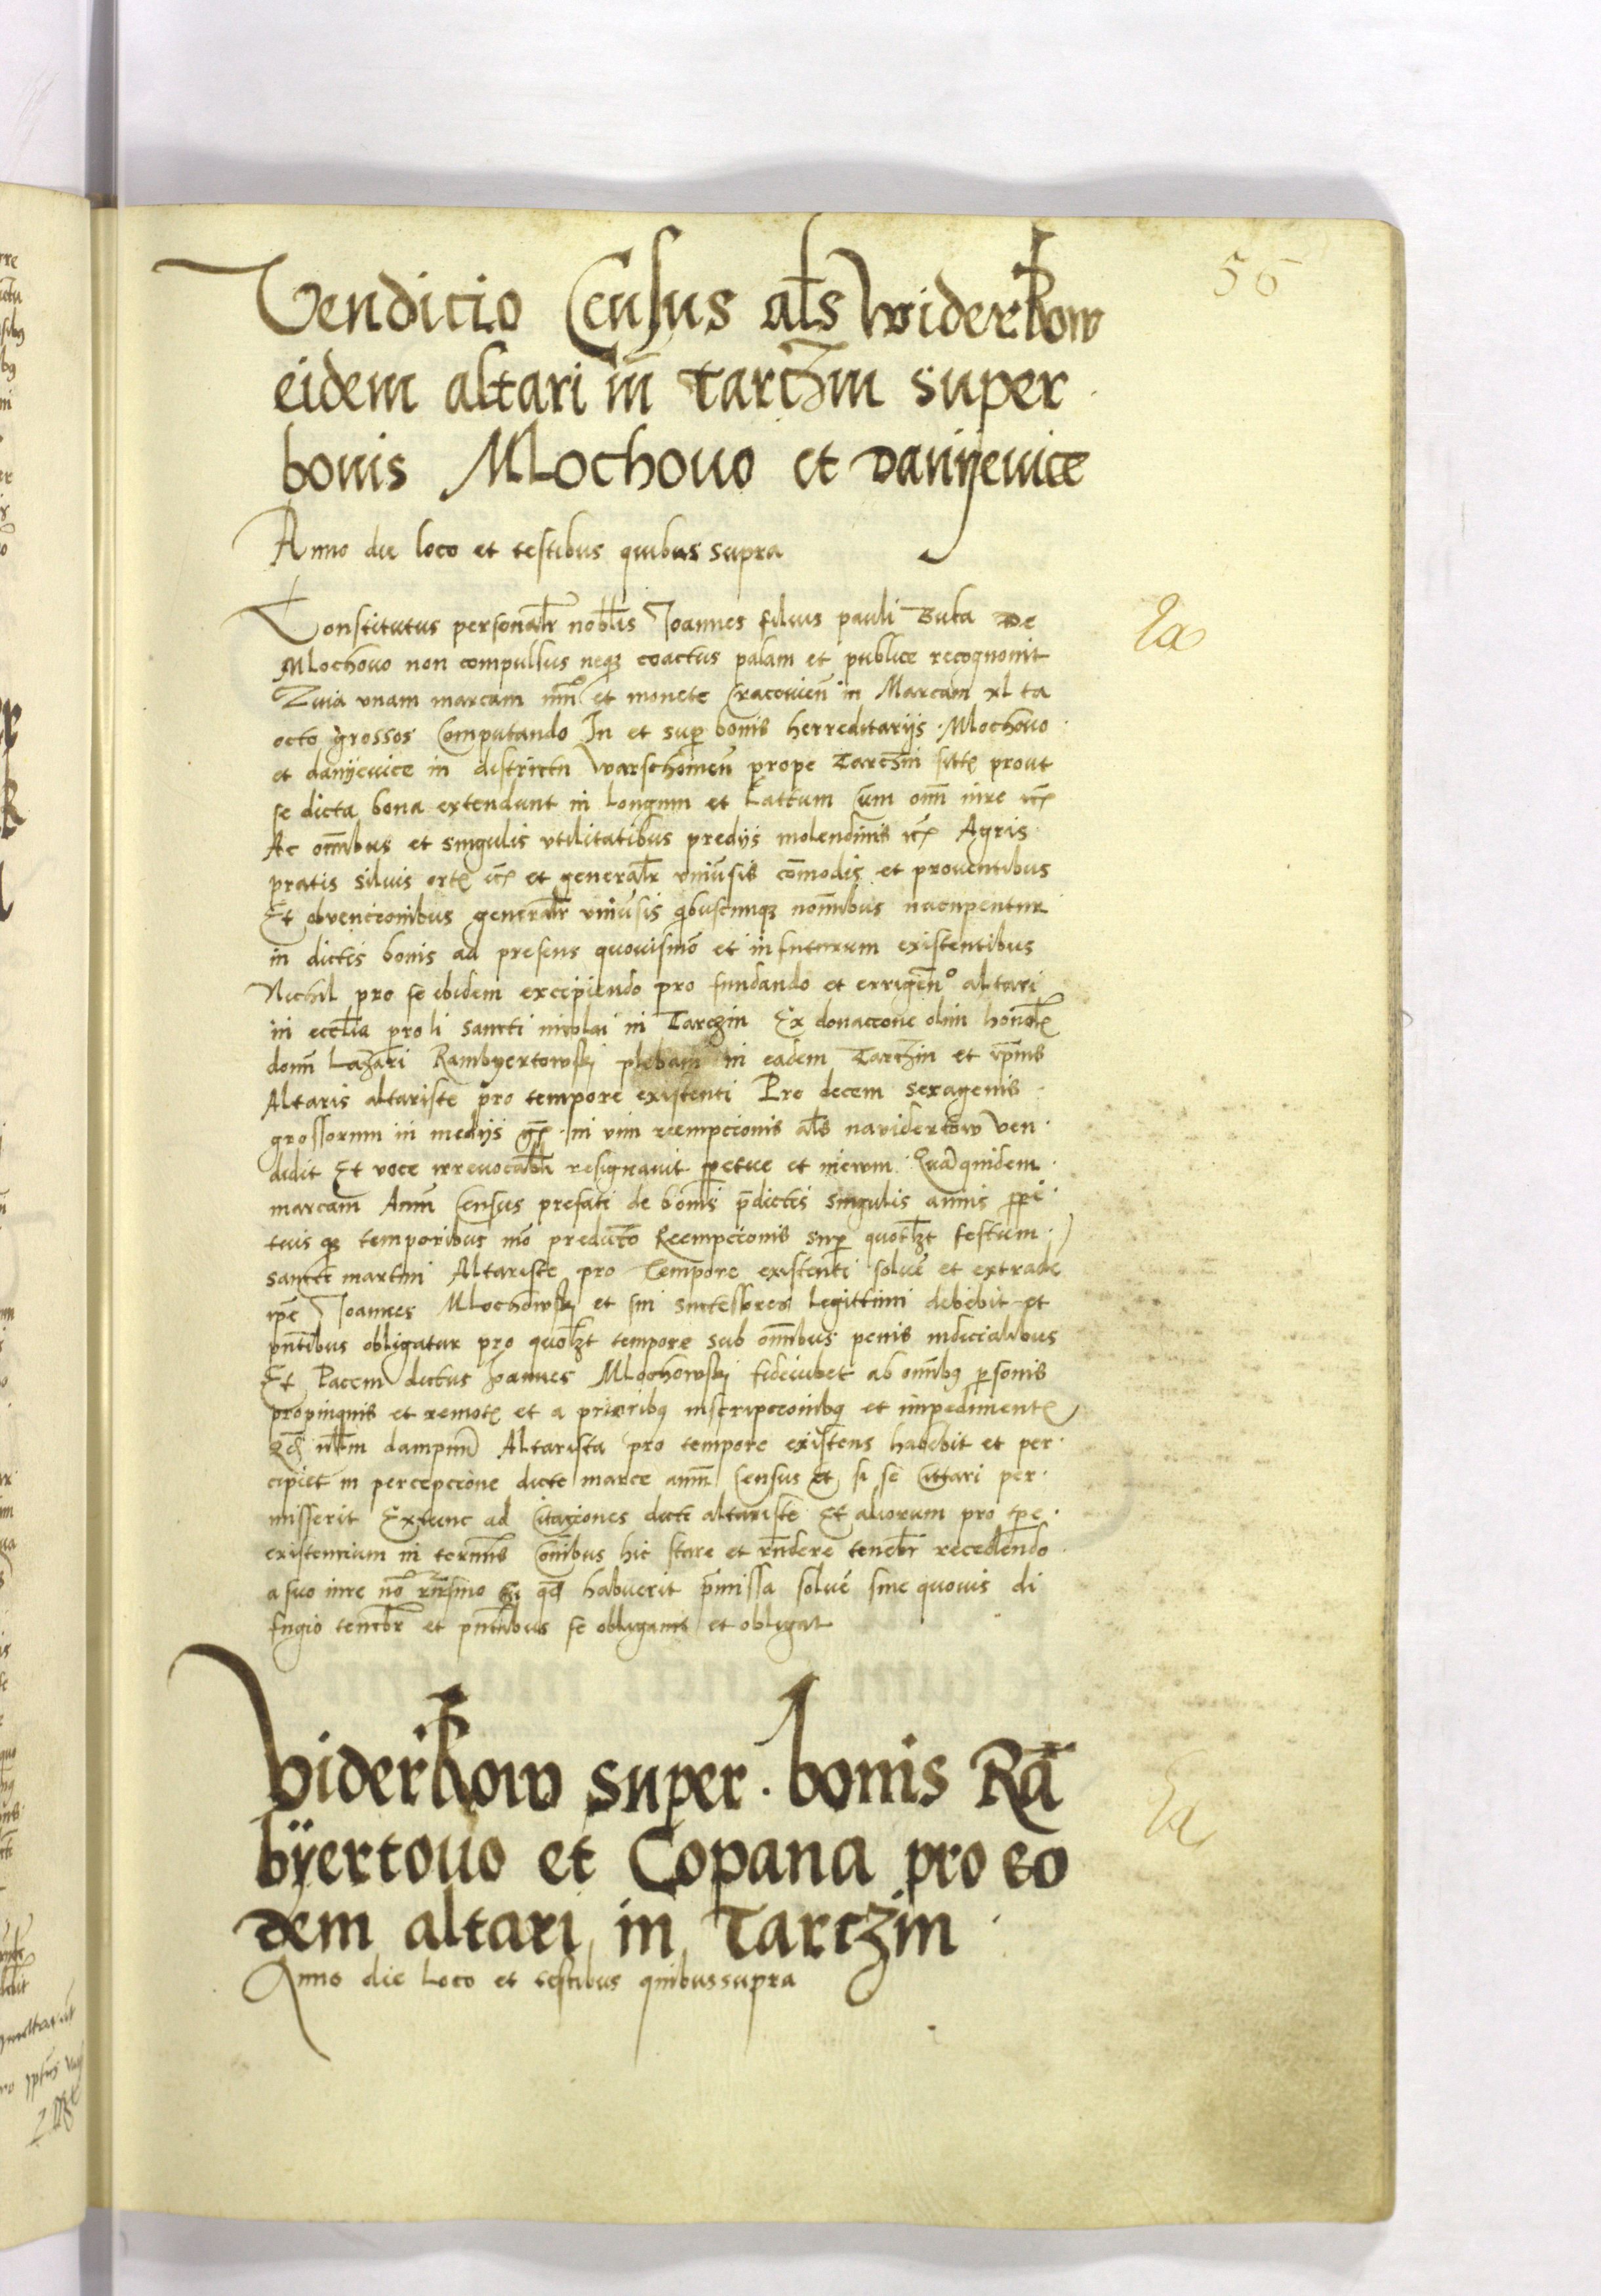 56
Vendicio Census al̄s widerkow
eidem altari in Tarczin super
bonis Mlochovo et Danijevice
Anno die loco et testibus quibus supra
Constitutus personalr̄ nobl̄is Joannes filius pauli Buka de
Mlochovo non compulsus neq3 coactus palam et publice recognovit
Quia vnam marcam et monete Cracovien̄ in Marcam xl ta
octo grossos Computando In et sup bonis herreditarijs Mlochovo
et danijevice in districtu warschovien̄ prope Tarczin prout
se dicta bona extendunt in Longum et Lattum Cum om̄i iure
Ac om̄ibus et singulis vtilitatibus predijs molendinis Agris
pratis silvis et generalr̄ vniu̅sis co̅modis et proventibus
Et obvencionibus generalr̄ vniu̅sis q̄buscunq3 no̅i̅bus nacupentur
in dictis bonis ad presens quovismo̅ et in futurum existentibus
Nichil pro se ibidem excipiendo pro fundando et errigen̄o altari
in eccl̄ia pro li sancti nicolai in Tarczin Ex donacione olim
dom̄ Lazari Rambyertowskj plebani in eadem Tarczin et
Altaris altariste pro tempore existenti Pro decem sexagenis
grossorum in medijs in vim reempcionis al̄s naviderkow ven
didit Et voce irrevocabl̄i resignavit ꝑpetue et in ewm Quā quidem
marcam Anni Census prefati de bonis p̄dictis singulis annis ꝑpe
tuis q3 temporibus Reempcionis Sup quotl3t festum
sancti martini Altariste pro Tempore existenti solve̅ et extrade
ip̄e Joannes Mlochowskj et sui successores legittimi debebit et
pn̄tibus obligatur pro quotl3t tempore sub om̄ibus penis iudicialibus
Et Pacem dictus Joannes Mlochowskj fideiubet ab om̄ibq personis
propinquis et remotis et a prioribq inscripcionibq et impedimentis
nl̄lm dampnum Altarista pro tempore existens habebit et per
cipiet in percepcione dicte marce anni Census et si se Cittari per
misserit Extunc ad Citaciones dicti altariste Et aliorum pro tp̄e
existencium in terminis om̄ibus hic stare et rn̄dere tenebr̄ recedendo
a suo iure habuerit p̄missa solve̅ sine quovis di
fugio tenebr̄ et pn̄tibus se obligavit et obligat
Viderkow super bonis Rā
byertovo et Copana pro eo
dem altari in Tarczin
Anno die Loco et testibus quibus supra